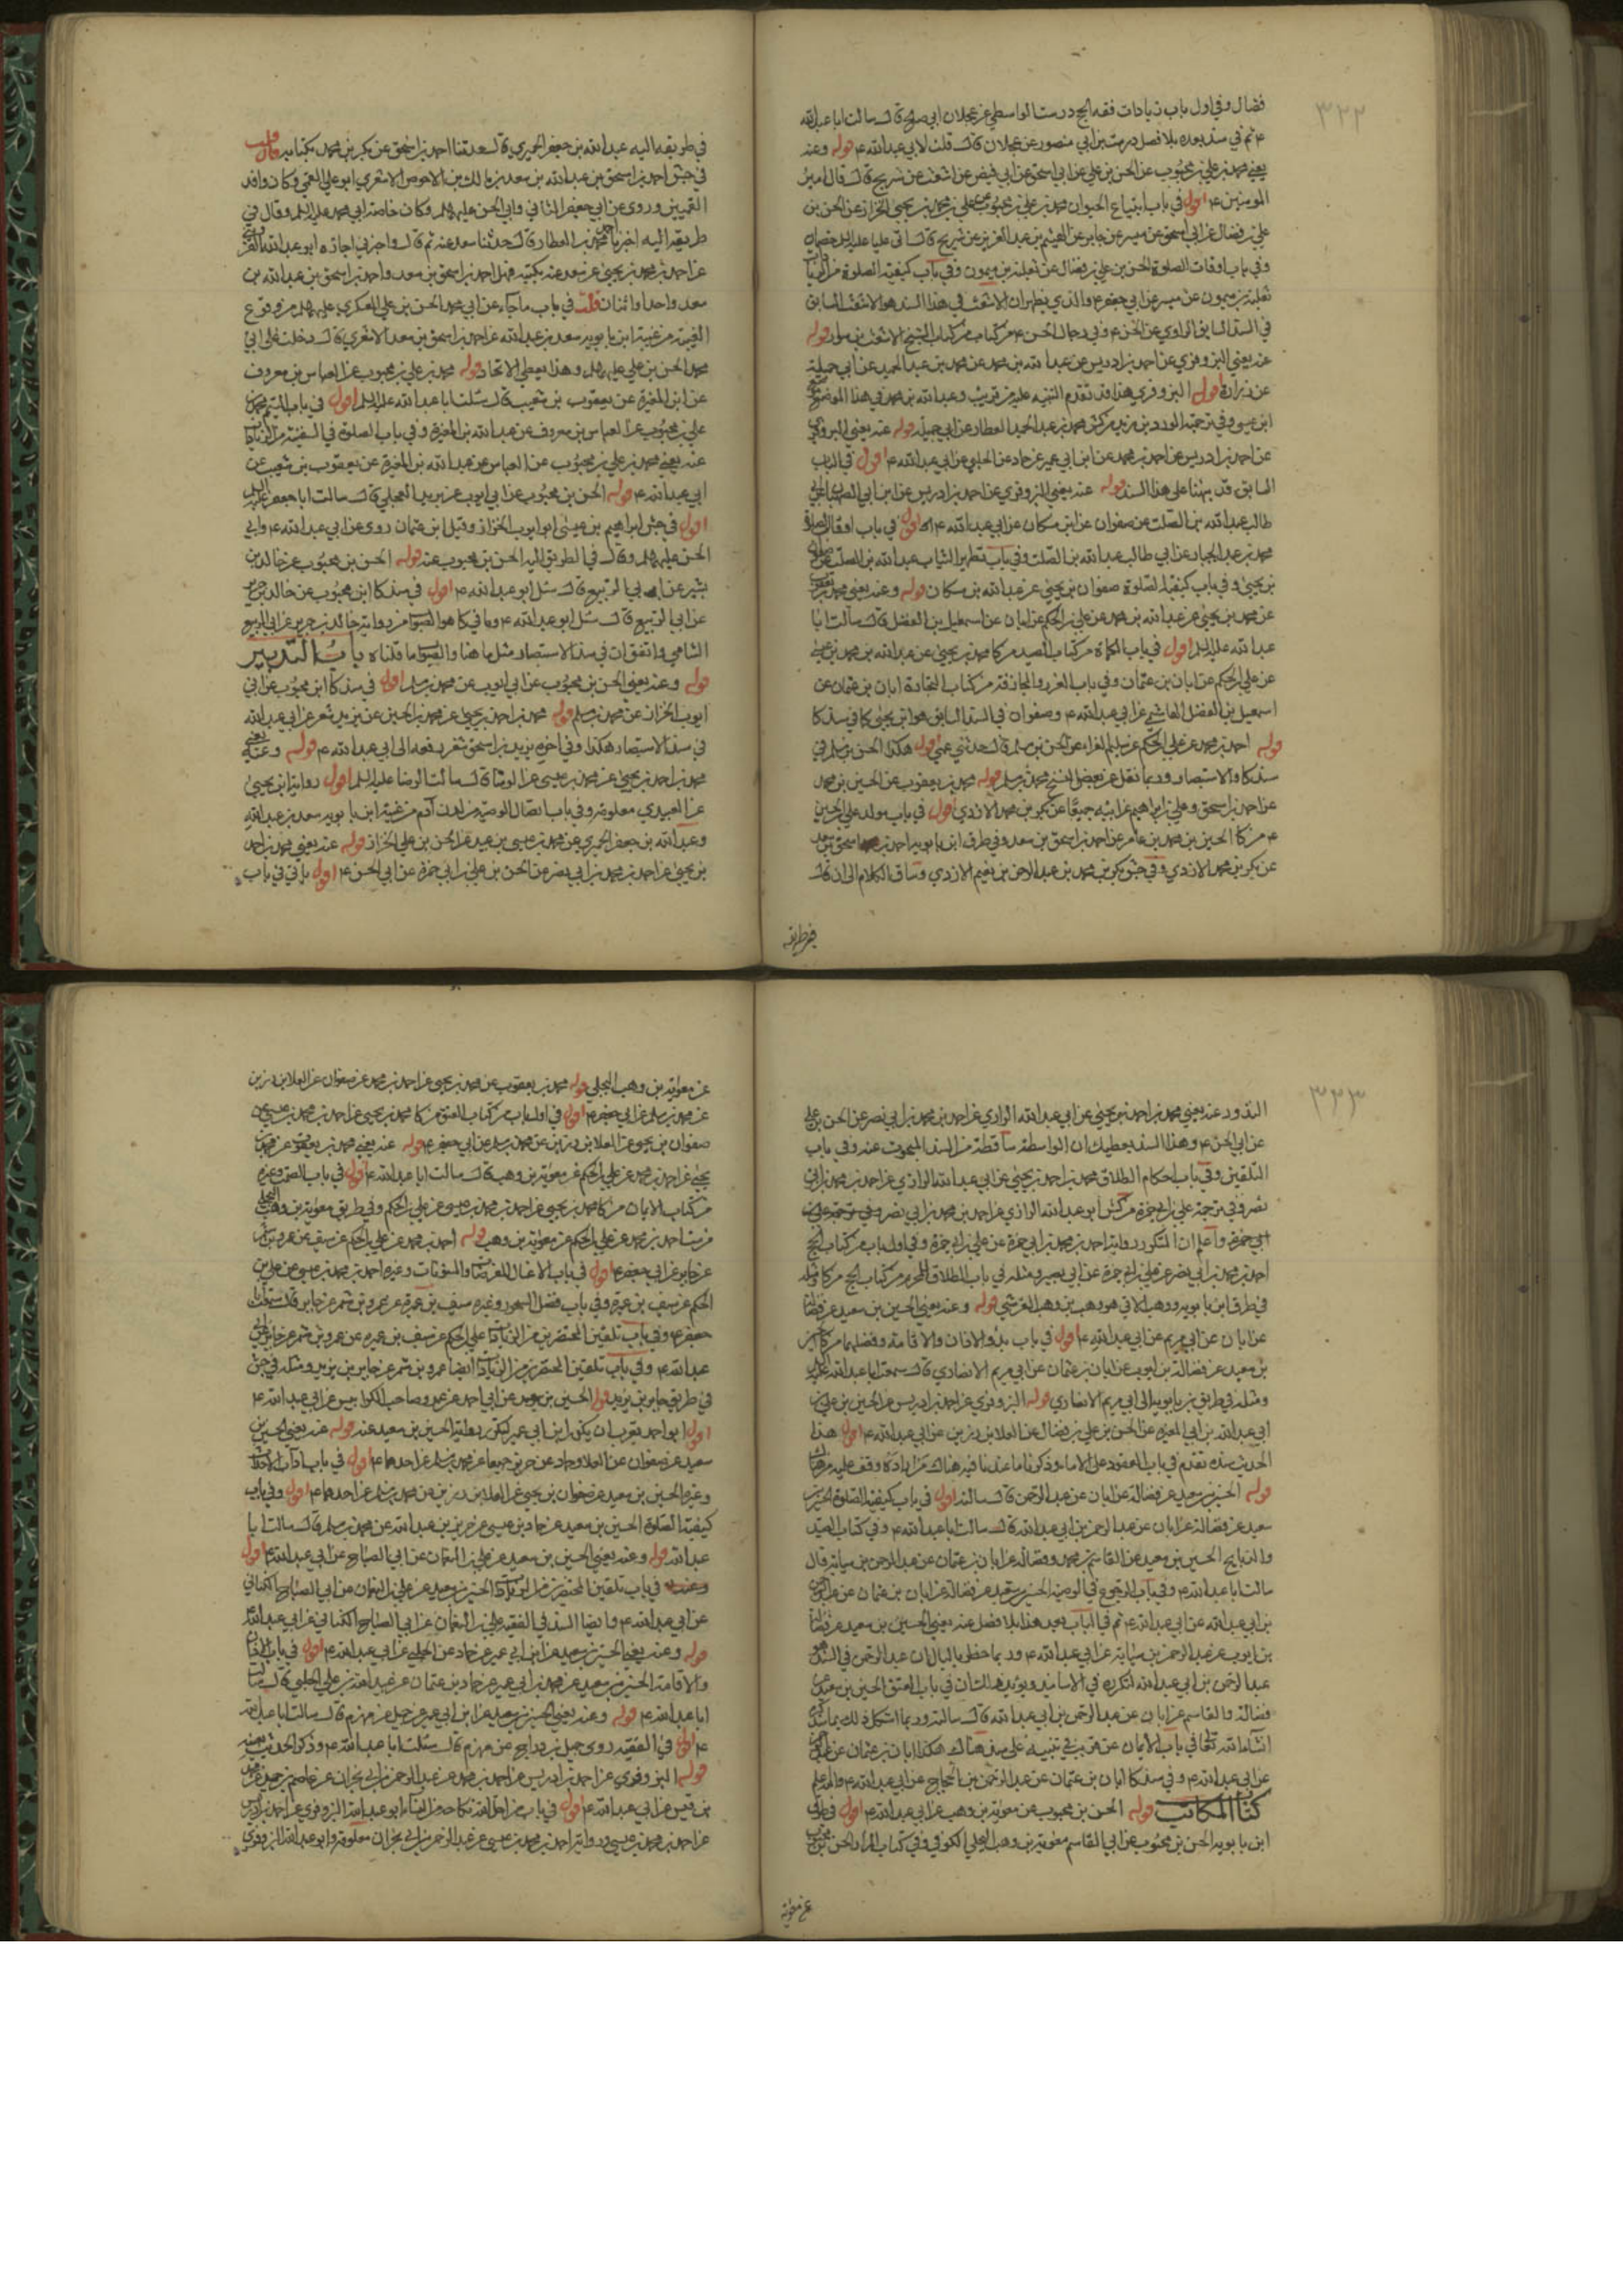 ٣٢٢
فضال وفي اول باب زيادات فقه الحج درست الواسطي عن عجلان ابي صالح قال سالت ابا عبد الله
ع ثم في سند بعده بلا فصل درست بن ابي منصور عن عجلان قال قلت لابي عبد الله ع قوله وعنه
يعني محمد بن علي بن محبوب عن الحسن بن علي عن ابي اسحق عن ابي فيض عن اشعث عن شريح قال قال امير
المومنين ع اقول في باب ابتياع الحيوان محمد بن علي بن محبوب عن علي بن محمد بن يحيى الخزاز عن الحسن بن
علي بن فضال عن ابي اسحق عن ميسر عن جابر عن الهيثم بن عبد العزيز عن شريح قال اتى عليا عليه السلم خصمان
وفي باب اوقات الصلوة الحسن بن علي بن فضال عن ثعلبة بن ميمون وفي باب كيفية الصلوة من
ثعلبة بن ميمون عن ميسر عن ابي جعفر ع والذي يظهر ان الاشعث في هذا السند هو الاشعث السابق
في السند السابق الراوي عن الحسن ع وفي رجال الحسن ع من كتاب الشيخ الاشعث بن سوار قوله
عنه يعني البزوفري عن احمد بن ادريس عن عبد الله بن محمد عن محمد بن عبد الحميد عن ابي جميلة
عن زرارة اقول البزوفري هذا قد تقدم التنبيه عليه من قريب وعبد الله بن محمد في هذا الموضع
ابن عيسى وفي ترجمة الورد بن زيد من كش محمد بن عبد الحميد العطار عن ابي جميلة قوله عنه يعني البزوفري
عن احمد بن ادريس عن احمد بن محمد عن ابن ابي عمير عن حماد عن الحلبي عن ابي عبد الله ع اقول في الباب
السابق قد نبهنا على هذا السند قوله عنه يعني البزوفري عن احمد بن ادريس عن ابن ابي الصهبان عن ابي
طالب عبد الله بن الصلت عن صفوان عن ابن مسكان عن ابي عبد الله ع اقول في باب اوقات الصلوة
محمد بن عبد الجبار عن ابي طالب عبد الله بن الصلت وفي باب تطهير الثياب عبد الله بن الصلت عن صفوان
بن يحيى وفي باب كيفية الصلوة صفوان بن يحيى عن عبد الله بن مسكان قوله وعنه يعني محمد بن يعقوب
عن محمد بن يحيى عن عبد الله بن محمد عن علي بن الحكم عن ابان عن اسمعيل بن الفضل قال سالت ابا
عبد الله عليه السلم اقول في باب الكماة من كتاب الصيد من كا محمد بن يحيى عن عبد الله بن محمد بن عيسى
عن علي بن الحكم عن ابان بن عثمان وفي باب الغرر والمجازفة من كتاب التجارة ابان بن عثمان عن
اسمعيل بن الفضل الهاشمي عن ابي عبد الله ع وصفوان في السند السابق هو ابن يحيى كما في سند كا
قوله احمد بن محمد عن علي بن الحكم عن سليم الفراء عن الحسن بن مسلم قال حدثتني عمتي اقول هكذا الحسن بن مسلم في
سند كا والاستبصار وربما نقل عن بعض النسخ محمد بن مسلم قوله محمد بن يعقوب عن الحسين بن محمد
عن احمد بن اسحق وعلي بن ابراهيم عن ابيه جميعا عن بكر بن محمد الازدي اقول في باب مولد علي بن الحسين
ع من كا الحسين بن محمد بن عامر عن احمد بن اسحق بن سعد وفي طرق ابن بابويه احمد بن اسحق بن سعد
عن بكر بن محمد الازدي وفي جش بكر بن محمد بن عبد الرحمن بن نعيم الازدي وساق الكلام الى ان قال
في طريقه
في طريقه اليه عبد الله بن جعفر الحميري قال حدثنا احمد بن اسحق عن بكر بن محمد بكتابه قلت
في جش احمد بن اسحق بن عبد الله بن سعد بن مالك بن الاحوص الاشعري ابو علي القمي وكان وافد
القميين وروى عن ابي جعفر الثاني وابي الحسن عليهما السلم وكان خاصة ابي محمد عليه السلم وقال في
طريقه اليه اخبرنا احمد بن محمد بن العطار قال حدثنا سعد عنه ثم قال واخبرني اجازة ابو عبد الله القزويني
عن احمد بن محمد بن يحيى عن سعد عنه بكتبه فهل احمد بن اسحق بن سعد واحمد بن اسحق بن عبد الله بن
سعد واحد او اثنان قلت في باب ما جاء عن ابي محمد الحسن بن علي العسكري عليهما السلم من وقوع
الغيبة من غيبة ابن بابويه سعد بن عبد الله عن احمد بن اسحق بن سعد الاشعري قال دخلت على ابي
محمد الحسن بن علي عليهما السلم وهذا يعطي الاتحاد قوله محمد بن علي بن محبوب عن العباس بن معروف
عن ابن المغيرة عن يعقوب بن شعيب قال سئلت ابا عبد الله عليه السلم اقول في باب التيمم محمد بن
علي بن محبوب عن العباس بن معروف عن عبد الله بن المغيرة وفي باب الصلوة في السفينة من الزيادات
عنه يعني محمد بن علي بن محبوب عن العباس عن عبد الله بن المغيرة عن يعقوب بن شعيب عن
ابي عبد الله ع قوله الحسن بن محبوب عن ابي ايوب عن بريد العجلي قال سالت ابا جعفر عليه السلم
اقول في جش ابراهيم بن عيسى ابو ايوب الخزاز وقيل ابن عثمان روى عن ابي عبد الله ع وابي
الحسن عليهما السلم وقال في الطريق اليه الحسن بن محبوب عنه قوله الحسن بن محبوب عن خالد بن
بشير عن ابي الربيع قال سئل ابو عبد الله ع اقول في سند كا ابن محبوب عن خالد بن جرير
عن ابي الربيع قال سئل ابو عبد الله ع وما في كا هو الصواب من رواية خالد بن جرير عن ابي الربيع
الشامي واتفق ان في سند الاستبصار مثل ما هنا والصواب ما قلناه باب التدبير
قوله وعنه يعني الحسن بن محبوب عن ابي ايوب عن محمد بن مسلم اقول في سند كا ابن محبوب عن ابي
ايوب الخزاز عن محمد بن مسلم قوله محمد بن احمد بن يحيى عن محمد بن الحسين عن يزيد شعر عن ابي عبد الله
في سند الاستبصار هكذا وفي اخره يزيد بن اسحق شعر رفعه الى ابي عبد الله ع قوله وعنه يعني
محمد بن احمد بن يحيى عن محمد بن عيسى عن الوشا قال سالت الرضا عليه السلم اقول رواية ابن يحيى
عن العبيدي معلومة وفي باب اتصال الوصية من لدن آدم من غيبة ابن بابويه سعد بن عبد الله
وعبد الله بن جعفر الحميري عن محمد بن عيسى بن عبيد عن الحسن بن علي الخزاز قوله عنه يعني محمد بن احمد
بن يحيى عن احمد بن محمد بن ابي نصر عن الحسن بن علي بن ابي حمزة عن ابي الحسن ع اقول ياتي في باب
٣٢٣
النذور عنه يعني محمد بن احمد بن يحيى عن ابي عبد الله الرازي عن احمد بن محمد بن ابي نصر عن الحسن بن علي
عن ابي الحسن ع وهذا السند يعطيك ان الواسطة ساقطة من السند المبحوث عنه وفي باب
التلقين وفي باب احكام الطلاق محمد بن احمد بن يحيى عن ابي عبد الله الرازي عن احمد بن محمد بن ابي
نصر وفي ترجمة علي بن ابي حمزة من كش ابو عبد الله الرازي عن احمد بن محمد بن ابي نصر
ابي حمزة واعلم ان المتكرر رواية احمد بن محمد بن ابي حمزة عن علي بن ابي حمزة وفي اول باب من كتاب الحج
احمد بن محمد بن ابي نصر عن علي بن ابي حمزة عن ابي بصير ومثله في باب الطلاق للمحرم من كتاب الحج من كا ومثله
في طرق ابن بابويه ووهب الاتي هو وهب بن وهب القرشي قوله وعنه يعني الحسين بن سعيد عن فضالة
عن ابان عن ابي مريم عن ابي عبد الله ع اقول في باب بدو الاذان والاقامة وفضلهما من كا
بن سعيد عن فضالة بن ايوب عن ابان بن عثمان عن ابي مريم الانصاري قال سمعت ابا عبد الله عليه السلم
ومثله في طريق بن بابويه الى ابي مريم الانصاري قوله البزوفري عن احمد بن ادريس عن الحسين بن علي بن
ابي عبد الله بن ابي المغيرة عن الحسن بن علي بن فضال عن العلا بن رزين عن ابي عبد الله ع اقول هذا
الحديث سنده تقدم في باب العقود على الاماء وذكرنا ما عندنا فيه هناك من اراده وقف عليه من هناك
قوله الحسين بن سعيد عن فضالة عن ابان عن عبد الرحمن قال سالته اقول في باب كيفية الصلوة الحسين بن
سعيد عن فضالة عن ابان عن عبد الرحمن بن ابي عبد الله قال سالت ابا عبد الله ع وفي كتاب الصيد
والذبايح الحسين بن سعيد عن القاسم بن محمد وفضالة عن ابان بن عثمان عن عبد الرحمن بن سيابة قال
سالت ابا عبد الله ع وفي باب الرجوع في الوصية الحسين بن سعيد عن فضالة عن ابان بن عثمان عن عبد الرحمن
بن ابي عبد الله عن ابي عبد الله ع ثم في الباب بعد هذا بلا فصل عنه يعني الحسين بن سعيد عن فضالة
بن ايوب عن عبد الرحمن بن سيابة عن ابي عبد الله ع وربما خطر بالبال ان عبد الرحمن في السند هو
عبد الرحمن بن ابي عبد الله لتكرره في الاسانيد ويؤيد هذا الشان في باب العتق الحسين بن سعيد عن
فضالة والقاسم عن ابان عن عبد الرحمن بن ابي عبد الله قال سالته وربما اشكل ذلك بما سند
انشاء الله تعالى في باب الايمان عن قريب في تنبيه على سند هناك هكذا ابان بن عثمان عن
عن ابي عبد الله ع وفي سند كا ابان بن عثمان عن عبد الرحمن بن الحجاج عن ابي عبد الله ع والله اعلم
كتاب المكاتب قوله الحسن بن محبوب عن معوية بن وهب عن ابي عبد الله ع اقول في طرق
ابن بابويه الحسن بن محبوب عن ابي القاسم معوية بن وهب البجلي الكوفي وفي كتاب المزار الحسن بن محبوب
عن معوية
عن معوية بن وهب البجلي قوله محمد بن يعقوب عن محمد بن يحيى عن احمد بن محمد عن صفوان عن العلا بن رزين
عن محمد بن مسلم عن ابي جعفر ع اقول في اول باب من كتاب العتق من كا محمد بن يحيى عن احمد بن محمد بن عيسى عن
صفوان بن يحيى عن العلا بن رزين عن محمد بن مسلم عن ابي جعفر ع قوله عنه يعني محمد بن يعقوب عن محمد بن
يحيى عن احمد بن محمد عن علي بن الحكم عن معوية بن وهب قال سالت ابا عبد الله ع اقول في باب الصمت وغيره
من كتاب الايمان من كا محمد بن يحيى عن احمد بن محمد بن عيسى عن علي بن الحكم وفي طريق معوية بن وهب البجلي
من ست احمد بن محمد عن علي بن الحكم عن معوية بن وهب قوله احمد بن محمد عن علي بن الحكم عن سيف عن عمرو بن شمر
عن جابر عن ابي جعفر ع اقول في باب الاغسال المفترضات والمسنونات وغيره احمد بن محمد بن عيسى عن علي بن
الحكم عن سيف بن عميرة وفي باب فضل السحور وغيره سيف بن عميرة عن عمرو بن شمر عن جابر قال سمعت ابا
جعفر ع وفي باب تلقين المحتضرين من الزيادات علي بن الحكم عن سيف بن عميرة عن عمرو بن شمر عن جابر عن ابي
عبد الله ع وفي باب تلقين المحتضرين من الزيادات ايضا عمرو بن شمر عن جابر بن يزيد ومثله في جش
في طريق جابر بن يزيد قوله الحسين بن سعيد عن ابي احمد عن عمر وصاحب الكرابيس عن ابي عبد الله ع
اقول ابو احمد يقرب ان يكون ابن ابي عمير لتكرر رواية الحسين بن سعيد عنه قوله عنه يعني الحسين بن
سعيد عن صفوان عن العلا وحماد عن حريز جميعا عن محمد بن مسلم عن احدهما ع اقول في باب آداب الاحداث
وغيره الحسين بن سعيد عن صفوان بن يحيى عن العلا بن رزين عن محمد بن مسلم عن احدهما ع اقول وفي باب
كيفية الصلوة الحسين بن سعيد عن حماد بن عيسى عن حريز بن عبد الله عن محمد بن مسلم قال سالت ابا
عبد الله قوله وعنه يعني الحسين بن سعيد عن علي بن النعمان عن ابي الصباح عن ابي عبد الله ع اقول
في باب تلقين المحتضرين من الزيادات الحسين بن سعيد عن علي بن النعمان عن ابي الصباح الكناني
عن ابي عبد الله ع وايضا السند في الفقيه علي بن النعمان عن ابي الصباح الكناني عن ابي عبد الله
قوله وعنه يعني الحسين بن سعيد عن ابن ابي عمير عن حماد عن الحلبي عن ابي عبد الله ع اقول في باب الاذان
والاقامة الحسين بن سعيد عن محمد بن ابي عمير عن حماد بن عثمان عن عبيد الله بن علي الحلبي قال سالت
ابا عبد الله ع قوله وعنه يعني الحسين بن سعيد عن ابن ابي عمير عن جميل عن مهزم قال سالت ابا عبد الله
ع اقول في الفقيه روى جميل بن دراج عن مهزم قال سئلت ابا عبد الله ع وذكر الحديث بعينه
قوله البزوفري عن احمد بن ادريس عن احمد بن محمد عن عبد الرحمن بن ابي نجران عن عاصم بن حميد عن محمد
بن قيس عن ابي عبد الله ع اقول في باب من احل الله نكاحه من النساء ابو عبد الله البزوفري عن احمد بن ادريس
عن احمد بن محمد بن عيسى ورواية احمد بن محمد بن عيسى عن عبد الرحمن بن ابي نجران معلومة وابو عبد الله البزوفري